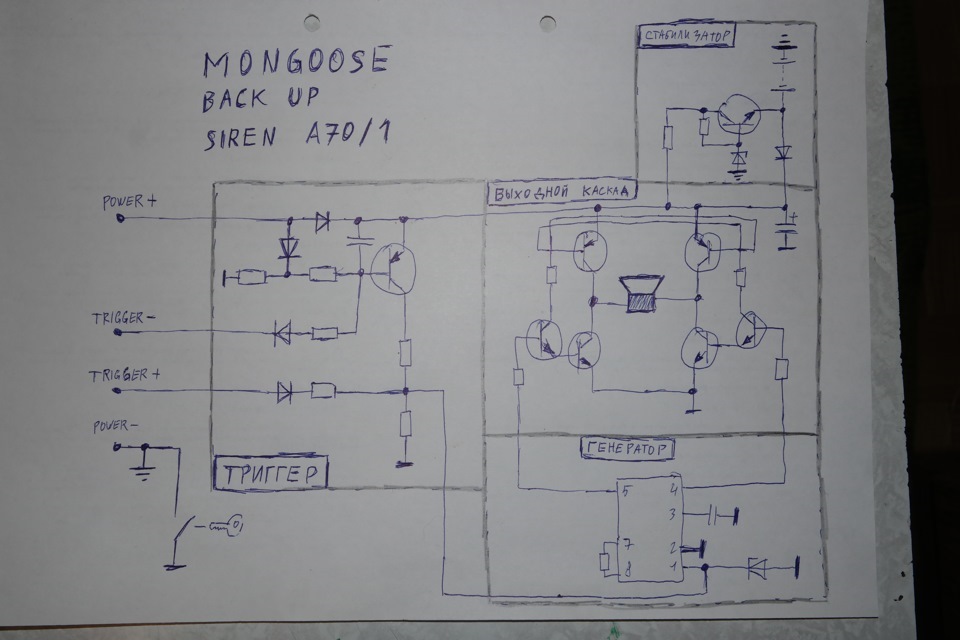 MONGOOSE
BACK UP
SIREN A70/1
СТАБИЛИЗАТОР
ВЫХОДНОЙ КАСКАД
POWER+
TRIGGER-
TRIGGER+
POWER-
ТРИГГЕР
ГЕНЕРАТОР
+
5 4
3
7 2
8 1